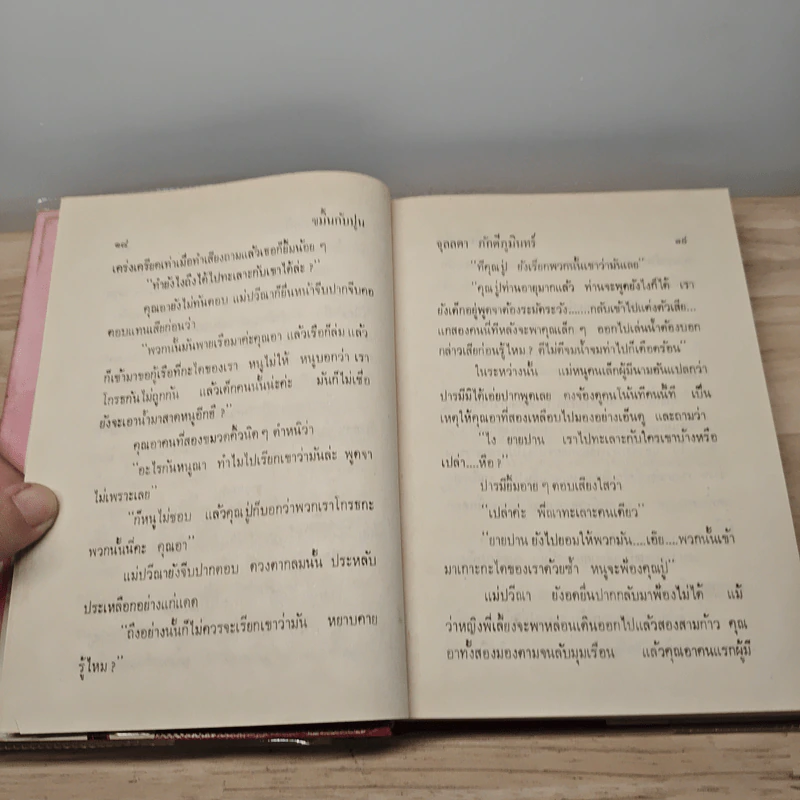 ๑๘ ขมิ้นกับปูน
เคร่งเครียดเท่าเมื่อทำเสียงถามแล้วเธอก็ยิ้มน้อย ๆ
"ทำยังไงถึงได้ไปทะเลาะกับเขาได้ล่ะ ?"
คุณอายังไม่ทันตอบ แม่ปวีณาก็ยื่นหน้าจีบปากจีบคอ
ตอบแทนเสียก่อนว่า
"พวกนั้นมันพายเรือมาค่ะคุณอา แล้วเรือก็ล่ม แล้ว
ก็เข้ามาขอกู้เรือที่กะไดของเรา หนูไม่ให้ หนูบอกว่า เรา
โกรธกันไม่ถูกกัน แล้วเด็กคนนั้นน่ะค่ะ มันก็ไม่เชื่อ
ยังจะเอาน้ำมาสาดหนูอีกฮี ?"
คุณอาคนที่สองขมวดคิ้วนิด ๆ ตำหนิว่า
"อะไรกันหนูณา ทำไมไปเรียกเขาว่ามันล่ะ พูดจา
ไม่เพราะเลย"
"ก็หนูไม่ชอบ แล้วคุณปู่ก็บอกว่าพวกเราโกรธกะ
พวกนั้นนี่คะ คุณอา"
แม่ปวีณายังจีบปากตอบ ดวงตากลมนั้น ประหลับ
ประเหลือกอย่างแก่แดด
"ถึงอย่างนั้นก็ไม่ควรจะเรียกเขาว่ามัน หยาบคาย
รู้ไหม ?"
จุลลดา ภักดีภูมินทร์ ๑๙
"ทีคุณปู่ ยังเรียกพวกนั้นเขาว่ามันเลย"
"คุณปู่ท่านอายุมากแล้ว ท่านจะพูดยังไงก็ได้ เรา
ยังเด็กอยู่พูดจาต้องระมัดระวัง.......กลับเข้าไปแต่งตัวเสีย...
แกสองคนนี่ทีหลังจะพาคุณเล็ก ๆ ออกไปเล่นน้ำต้องบอก
กล่าวเสียก่อนรู้ไหม ? ดีไม่ดีจมน้ำจมท่าไปก็เดือดร้อน"
ในระหว่างนั้น แม่หนูคนเล็กผู้มีนามอันแปลกว่า
ปารมีมิได้เอ่ยปากพูดเลย คงจ้องดูคนโน้นทีคนนี้ที เป็น
เหตุให้คุณอาที่สองเหลือบไปมองอย่างเอ็นดู และถามว่า
"ไง ยายปาน เราไปทะเลาะกับใครเขาบ้างหรือ
เปล่า....หือ ?"
ปารมียิ้มอาย ๆ ตอบเสียงใสว่า
"เปล่าค่ะ พี่ณาทะเลาะคนเดียว"
"ยายปาน ยังไปยอมให้พวกมัน....เอ๊ย....พวกนั้นเข้า
มาเกาะกะไดของเราด้วยซ้ำ หนูจะฟ้องคุณปู่"
แม่ปวีณา ยังอดยื่นปากกลับมาฟ้องไม่ได้ แม้
ว่าหญิงพี่เลี้ยงจะพาหล่อนเดินออกไปแล้วสองสามก้าว คุณ
อาทั้งสองมองตามจนลับมุมเรือน แล้วคุณอาคนแรกผู้มี